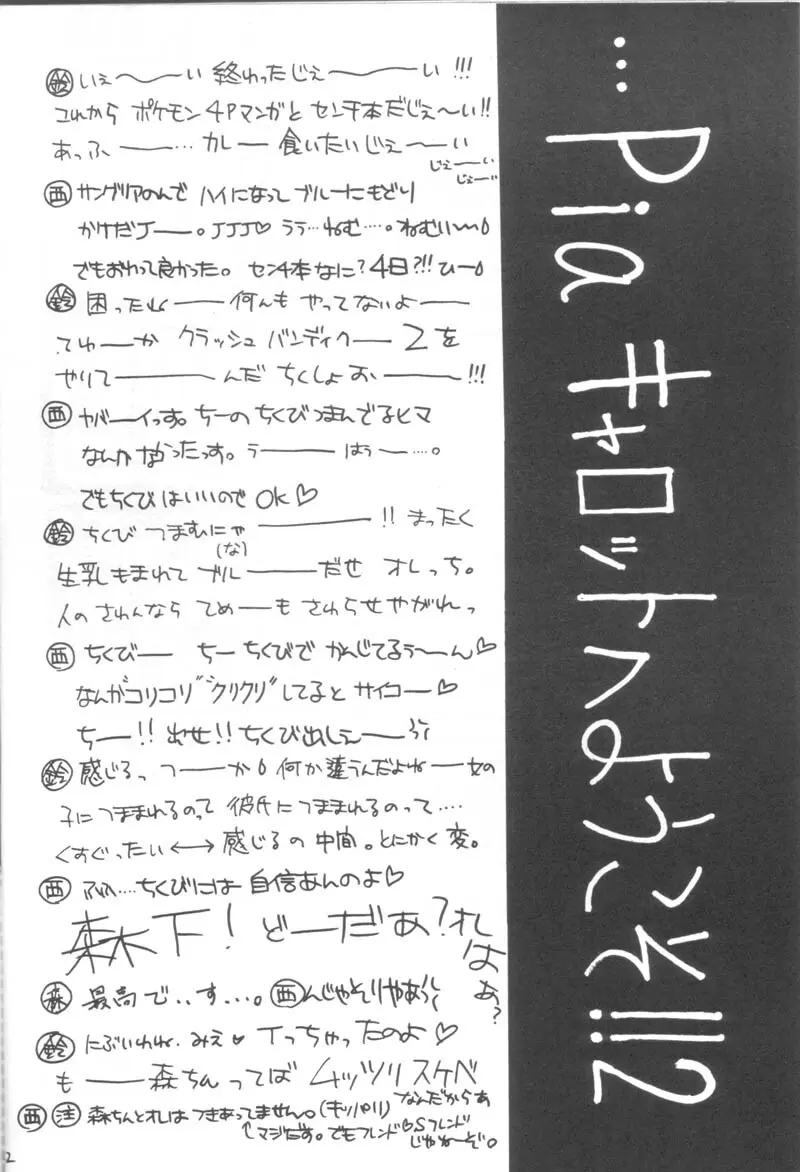 …Piaキャロットへようこそ!!2
鈴 いぇ〜〜い 終わったじぇ〜〜い!!!
これから ポケモン4Pマンガと センチ本だじぇ〜い!!
あっふ——… カレー 食いたいじぇ〜〜い
じぇ〜〜い
じぇ〜〜い
西 サングリアのんで ハイになって ブルーにもどり
かけだJ——。JJJ♡ ララ…ねむ…。ねむい〜〜
でもおわって良かった。センチ本なに?4日?!!ひ——
鈴 困ったね—— 何んも やってないよ——
てゆ——か クラッシュ バンディクー 2を
やりて————んだ ちくしょお———!!!
西 ヤバーイっす。ちーの ちくびつまんでるヒマ
なんか なかったっす。う—— はぅ——…。
でもちくびはいいので OK♡
鈴 ちくび つまむにゃ————!! まったく
(な)
生乳もまれて ブル———だぜ オレっち。
人の さわんなら てめ——も さわらせやがれっ
西 ちくび—— ちー ちくびで かんじてるぅ〜〜ん♡
なんかコリコリ゛クリクリ゛してると サイコー♡
ちー!! 出せ!! ちくび出しぇ——
鈴 感じるっ つ——か 何か違うんだよね——女の
子につままれるのって 彼氏につままれるのって….
くすぐったい ←→ 感じるの 中間。とにかく変。
西 ふふ….ちくびには 自信あんのよ♡
森木下! どーだぁ?オレ
はぁ?
森 最高で‥す…。西 んじゃそりゃあぅ
鈴 にぶいわね. みえ♥ Tっちゃったのよ♡
も——森ちんってば ムッツリスケベ
なんだからぁ
西 注 森ちんとオレは つきあってません。(キッパリ)
↑マジだす。でもフレンド♡Sフレンド
じゃねーぞ。
2